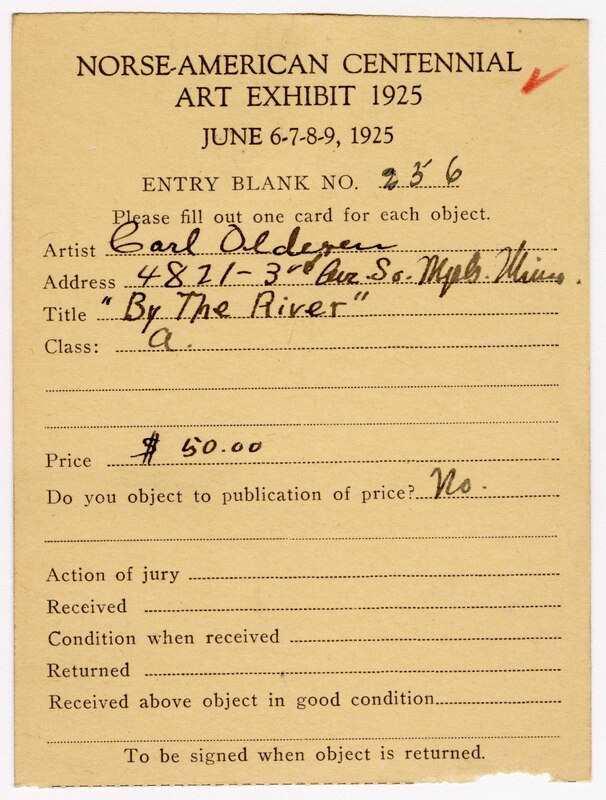 NORSE-AMERICAN CENTENNIAL
ART EXHIBIT 1925
JUNE 6-7-8-9, 1925
ENTRY BLANK NO. 256
Please fill out one card for each object.
Artist Carl Olderen
Address 4821-3rd Ave. So. Mpls. Minn.
Title "By The River"
Class: a.
Price $ 50.00
Do you object to publication of price? No.
Action of jury
Received
Condition when received
Returned
Received above object in good condition
To be signed when object is returned.